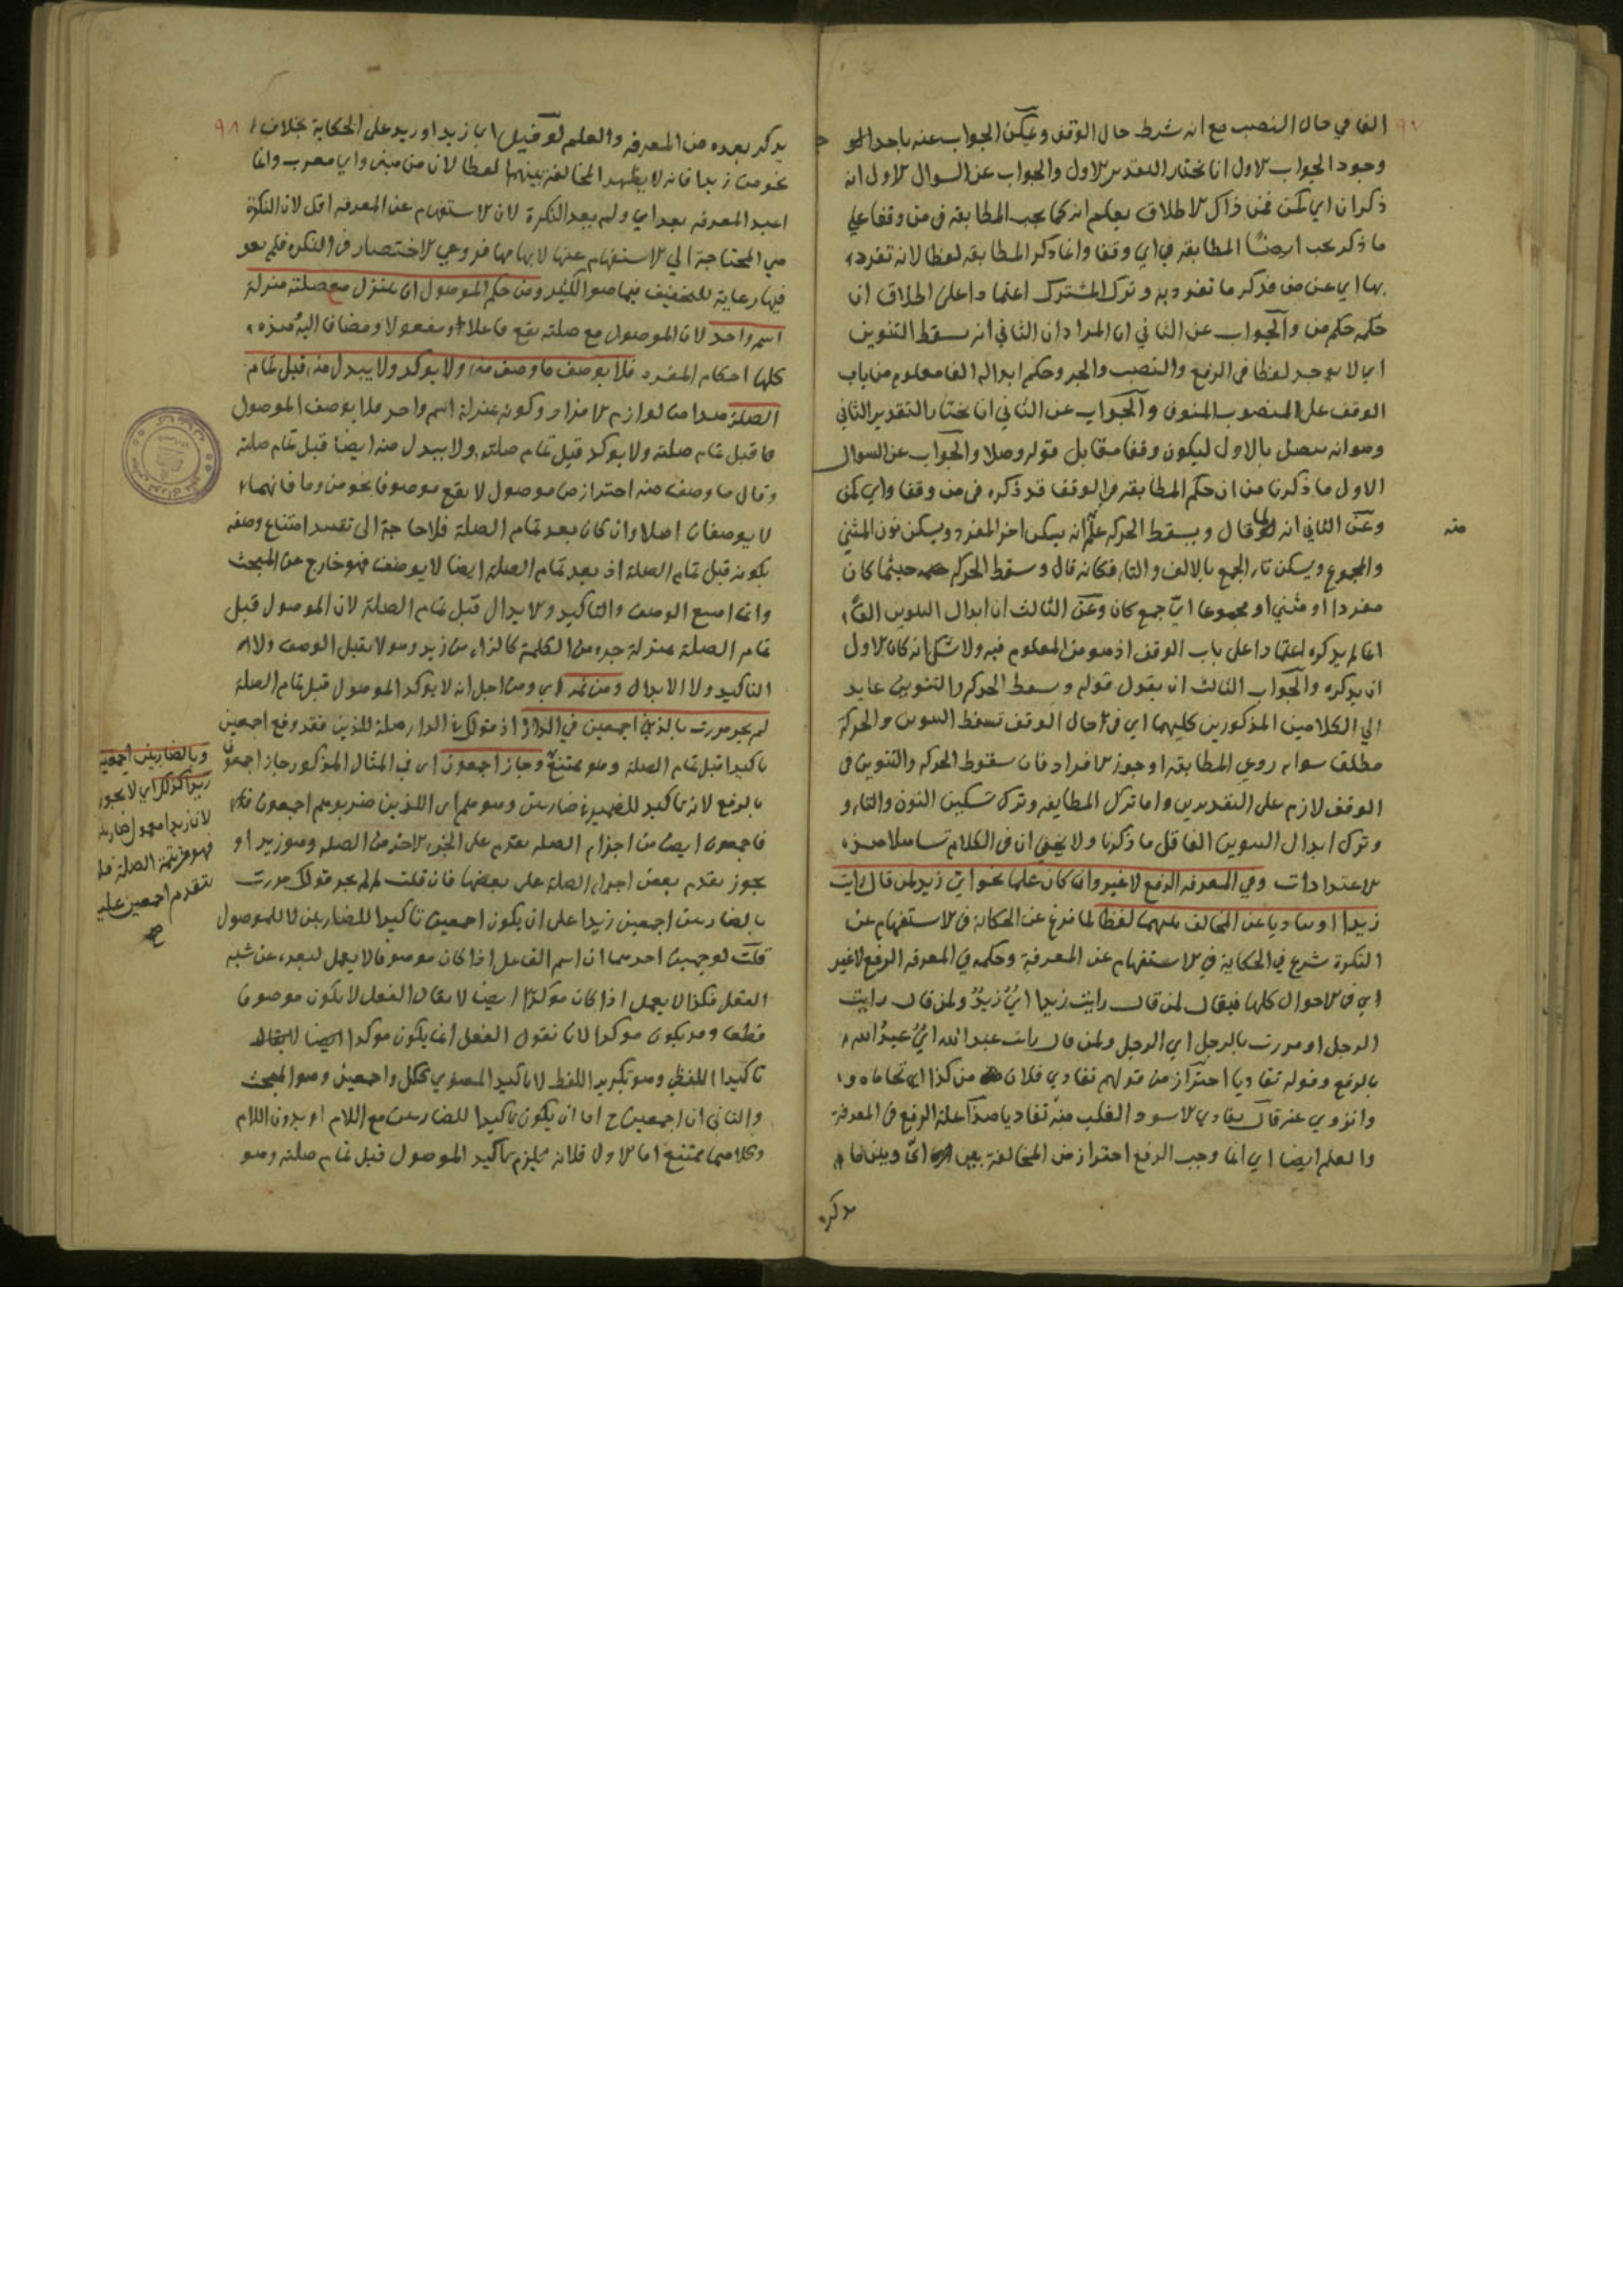 الفا في حال النصب مع انه شرط حال الوقف ويمكن الجواب عنه
وجود الجواب الاول انا نختار التقدير الاول والجواب عن السوال الاول انه
ذكر ان اي كمن فمن ذاك الاطلاق يعلم انه كما يجب المطابقة في من وقفا علي
ما ذكر يجب ايضا المطابقة في اي وقفا وانما ذكر المطابقة لفظا لانه تفرد
بها اي عن من فذكر ما تفرد به وترك المشترك اعتمادا على اطلاق ان
حكمه حكم من والجواب عن الثاني ان المراد ان الثاني انه يسقط التنوين
اي لا يوجد لفظا في الرفع والنصب والجر وحكم ابداله الفا معلوم من باب
الوقف على المنصوب المنون والجواب عن الثاني ان نختار التقدير الثاني
وهو انه متصل بالاول ليكون وقفا مقابل قوله وصلا والجواب عن السوال
الاول ما ذكرنا من ان حكم المطابقة في الوقف قد ذكره في من وقفا واي كمن
وعن الثاني انه لما قال ويسقط الحركة علم انه يسكن اخر المفرد ويسكن نون المثني
والمجموع ويسكن تاء الجمع بالالف والتاء فكانه قال وسقط الحركة حيثما كان
مفردا او مثني او مجموعا اي جمع كان وعن الثالث ان ابدال التنوين الفا
انما لم يذكره اعتمادا على باب الوقف اذ هو من المعلوم فيه ولا شك انه كان الاول
ان يذكره والجواب الثالث ان يقول قوله وسقط الحركة والتنوين عايد
الي الكلامين المذكورين كليهما اي في حال الوقف تسقط التنوين والحركة
مطلقا سواء روعي المطابقة او جوز الافراد فان سقوط الحركة والتنوين في
الوقف لازم على التقديرين واما ترك المطابقة وترك تسكين النون والتاء و
وترك ابدال التنوين الفا قل ما ذكرنا ولا يخفى ان في الكلام تساهلا من
الاعتدادات وفي المعرفة الرفع لا غير وان كان علما نحو اي زيد لمن قال رايت
زيدا او تفاديا عن التخالف بينهما لفظا لما فرغ عن الحكاية في الاستفهام عن
النكرة شرع في الحكاية في الاستفهام عن المعرفة وحكمه في المعرفة الرفع لا غير
اي في الاحوال كلها فيقال لمن قال رايت زيدا اي زيد ولمن قال رايت
الرجل او مررت بالرجل اي الرجل ولمن قال رايت عبد الله اي عبد الله
بالرفع وقوله تفاديا احتراز من قولهم تفادي فلان من كذا اي تحاماه و
وانزوي عنه قال تفادي الاسود الغلب منه تفاديا هذا علة الرفع في المعرفة
والعلم ايضا اي انما وجب الرفع احتراز من المخالفة بين اي وبين ما
يذكر
منه
يذكر بعده من المعرفة والعلم لو قيل اي زيدا وزيد على الحكاية بخلاف
نحو من زيدا فانه لا يظهر المخالفة بينهما لفظا لان من مبني واي معرب وانما
اعيد المعرفة بعد اي ولم يعد النكرة لان الاستفهام عن المعرفة اقل لان النكرة
هي المحتاجة الي الاستفهام عنها لابهامها فروعي الاختصار في النكرة فلم يعد
فيها رعاية للتخفيف فيما هو الكثير ومن حكم الموصول ان ينزل مع صلته منزلة
اسم واحد لان الموصول مع صلته يقع فاعلا ومفعولا ومضافا اليه وهذه
كلها احكام المفرد فلا يوصف ما وصف منه ولا يوكد ولا يبدل منه قبل تمام
الصلة هذا من لوازم الافراد وكونه بمنزلة اسم واحد فلا يوصف الموصول
ما قبل تمام صلته ولا يوكد قبل تمام صلته ولا يبدل منه ايضا قبل تمام صلته
وقال ما وصف منه احتراز من موصول لا يقع موصوفا نحو من وما فانهما
لا يوصفان اصلا وان كان بعد تمام الصلة فلا حاجة الى تقييد امتناع وصفه
بكونه قبل تمام الصلة اذ بعد تمام الصلة ايضا لا يوصف فهو خارج عن المبحث
وانما امتنع الوصف والتاكيد والابدال قبل تمام الصلة لان الموصول قبل
تمام الصلة بمنزلة جزء من الكلمة كالزاء من زيد وهو لا يقبل الوصف ولا
التاكيد ولا الابدال ومن ثمه اي ومن اجل انه لا يوكد الموصول قبل تمام الصلة
لم يجز مررت بالذين اجمعين في الدار اذ قولك في الدار صلة للذين فقد وقع اجمعين
تاكيدا قبل تمام الصلة وهو ممتنع وجاز اجمعون اي في المثال المذكور جاز اجمعون
بالرفع لانه تاكيد للضمير في ضاربين وهو هم اي اللذين ضربوهم اجمعون
فاجمعون ايضا من اجزاء الصلة مقدم على الجزء الاخر من الصلة وهو زيدا و
يجوز تقدم بعض اجزاء الصلة على بعضها فان قلت لم لم يجز قولك مررت
بالضاربين اجمعين زيدا على ان يكون اجمعين تاكيدا للضاربين لا للموصول
قلت لوجهين احدهما ان اسم الفاعل اذا كان موصوفا لا يعمل لبعده عن شبه
الفعل فكذا لا يعمل اذا كان موكدا ايضا لا يقال الفعل لا يكون موصوفا
قطعا وقد يكون موكدا لانا نقول الفعل انما يكون موكدا
تاكيدا اللفظي وهو تكرير اللفظ لا تاكيد المعنوي ككل واجمعين وهو المبحث
والثاني ان اجمعين ح اما ان يكون تاكيدا للضاربين مع اللام او بدون اللام
وكلاهما ممتنع اما الاول فلانه يلزم تاكيد الموصول قبل تمام صلته وهو
وبالضاربين اجمعين
زيدا كذلك اي لا يجوز
لان زيدا معمول ضاربين
فهو من تتمة الصلة فلا
يتقدم اجمعين عليه
صح